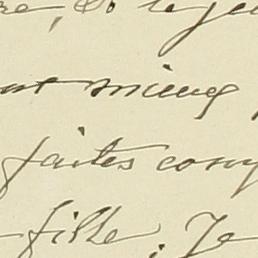 re, & le jeu
mieux
faites comp
fille. Je